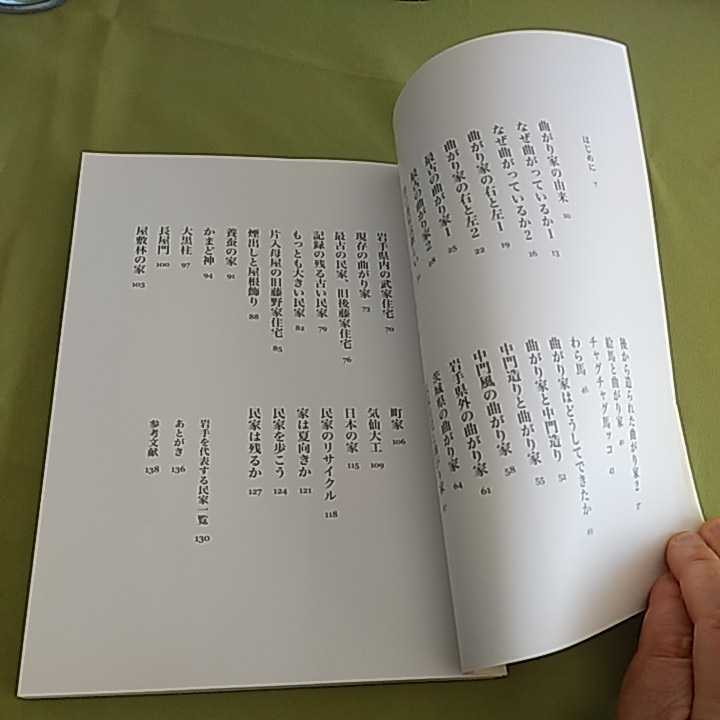 はじめに 7
曲がり家の由来 10
なぜ曲がっているか1 13
なぜ曲がっているか2 16
曲がり家の右と左1 19
曲がり家の右と左2 22
最古の曲がり家1 25
最古の曲がり家2 28
後から造られた曲がり家2 37
絵馬と曲がり家 40
チャグチャグ馬ッコ 43
わら馬 46
曲がり家はどうしてできたか 49
曲がり家と中門造り 52
中門造りと曲がり家 55
中門風の曲がり家 58
岩手県外の曲がり家 61
茨城県の曲がり家 64
岩手県内の武家住宅 70
現存の曲がり家 73
最古の民家、旧後藤家住宅 76
記録の残る古い民家 79
もっとも大きい民家 82
片入母屋の旧藤野家住宅 85
煙出しと屋根飾り 88
養蚕の家 91
かまど神 94
大黒柱 97
長屋門 100
屋敷林の家 103
町家 106
気仙大工 109
日本の家 115
民家のリサイクル 118
家は夏向きか 121
民家を歩こう 124
民家は残るか 127
岩手を代表する民家一覧 130
あとがき 136
参考文献 138